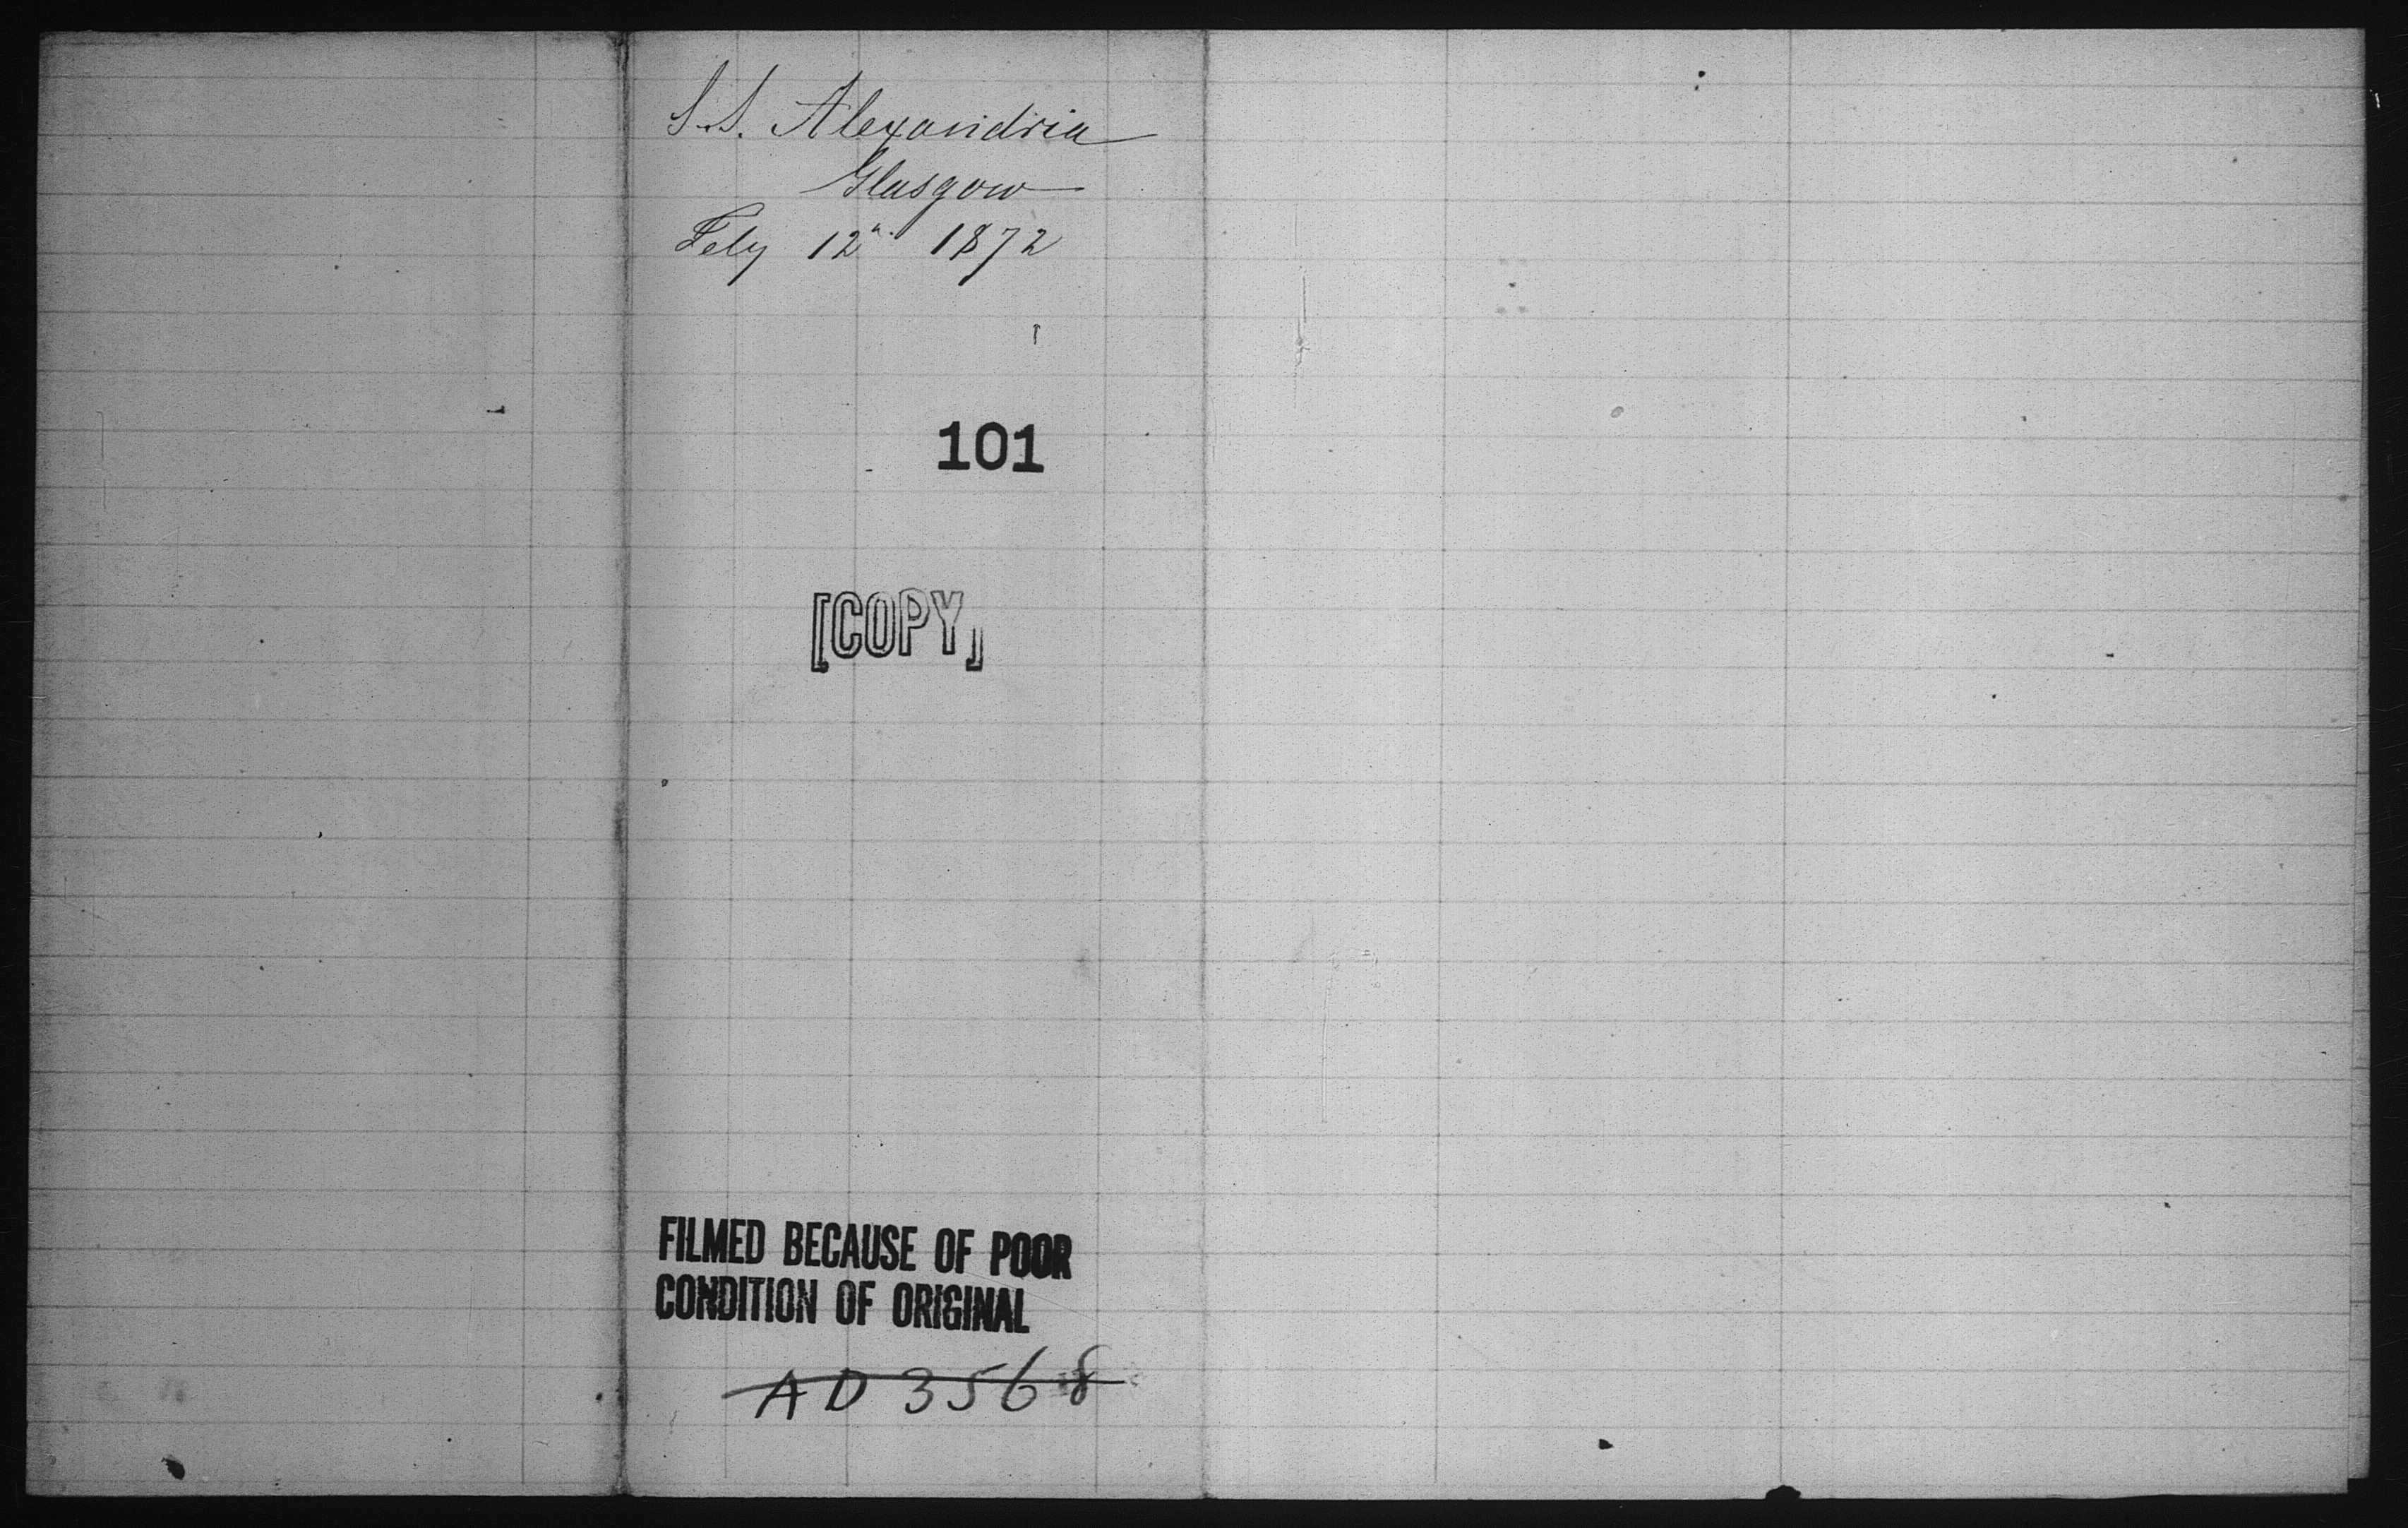 S.S. Alexandria
Glasgow
Feby 12" 1872
101
[COPY]
FILMED BECAUSE OF POOR
CONDITION OF ORIGINAL
AD 3568